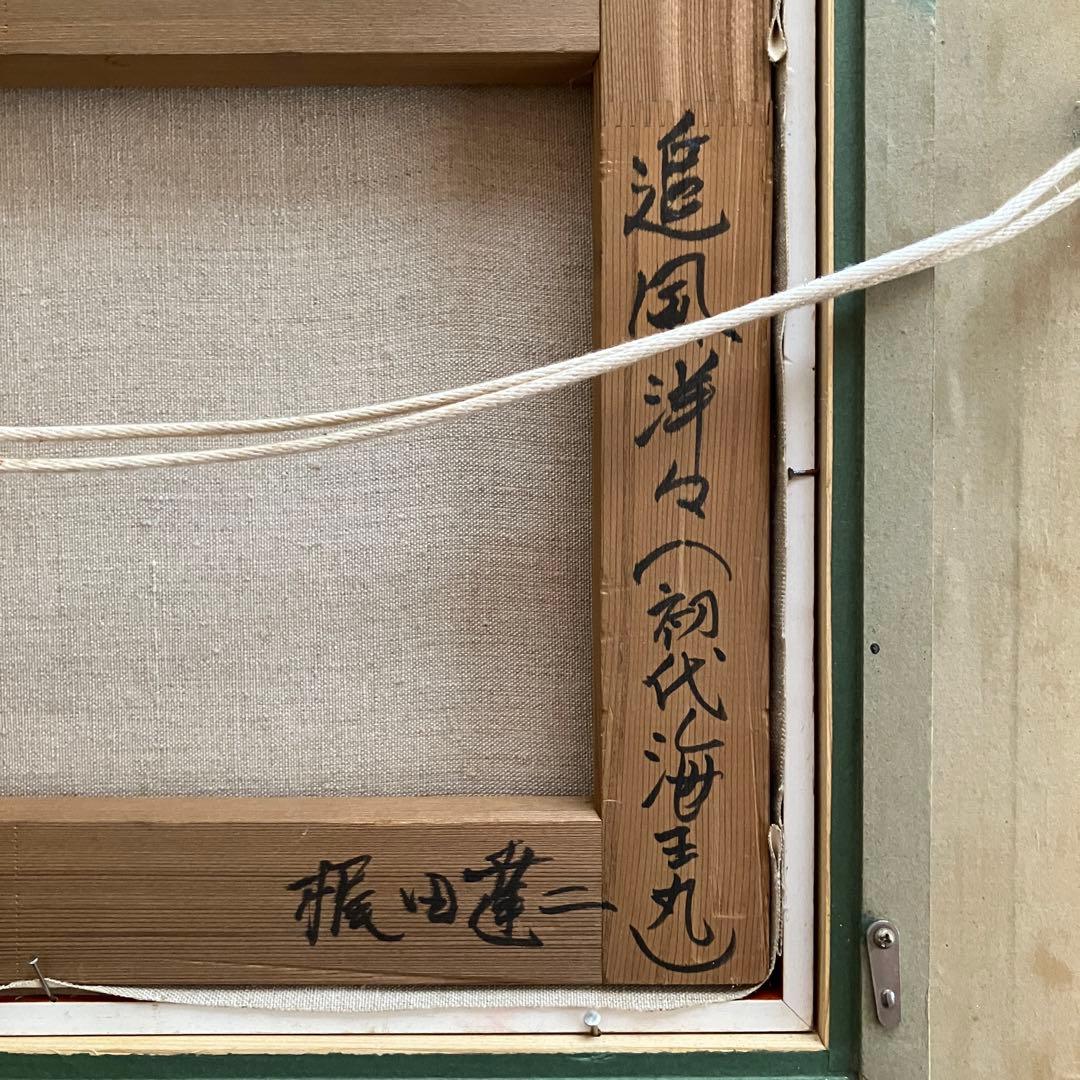 追風洋々(初代海王丸)
梶田達二